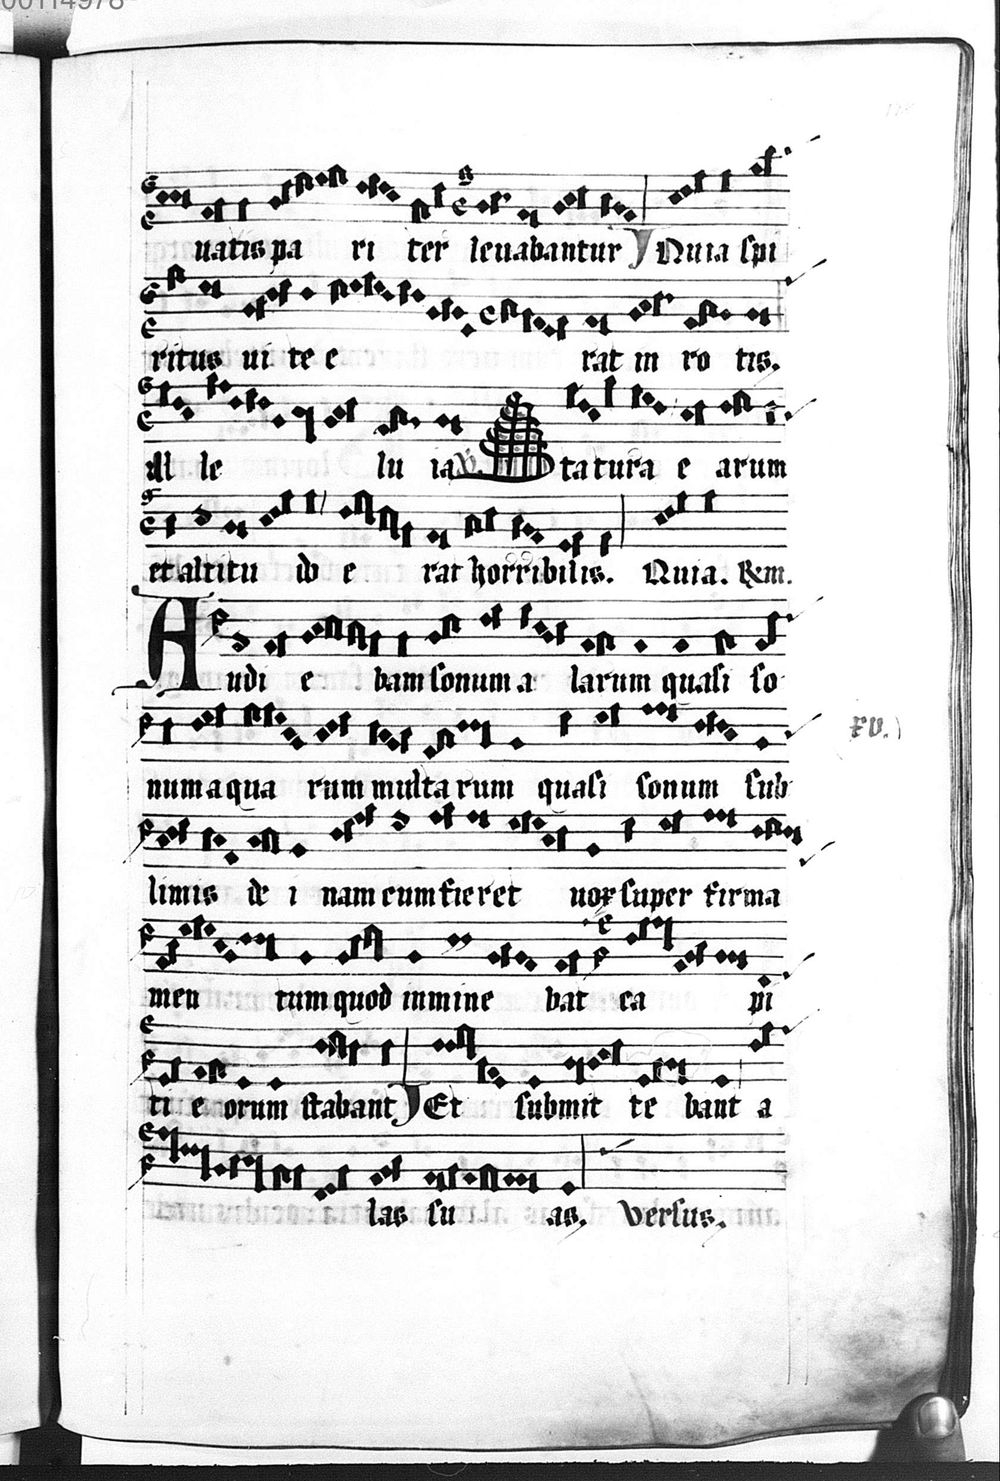 00114978
uatis pa ri ter leuabantur Quia spi
ritus ui te e rat in ro tis.
All le lu ia V. Statura e arum
et altitu do e rat horribilis. Quia. Rm.
Audi e bam sonum a larum quasi so
num aqua rum multa rum quasi sonum sub
xv.
limis de i nam cum fieret uox super firma
men tum quod inmine bat ca pi
ti e orum stabant Et submit te bant a
las su as. Versus.